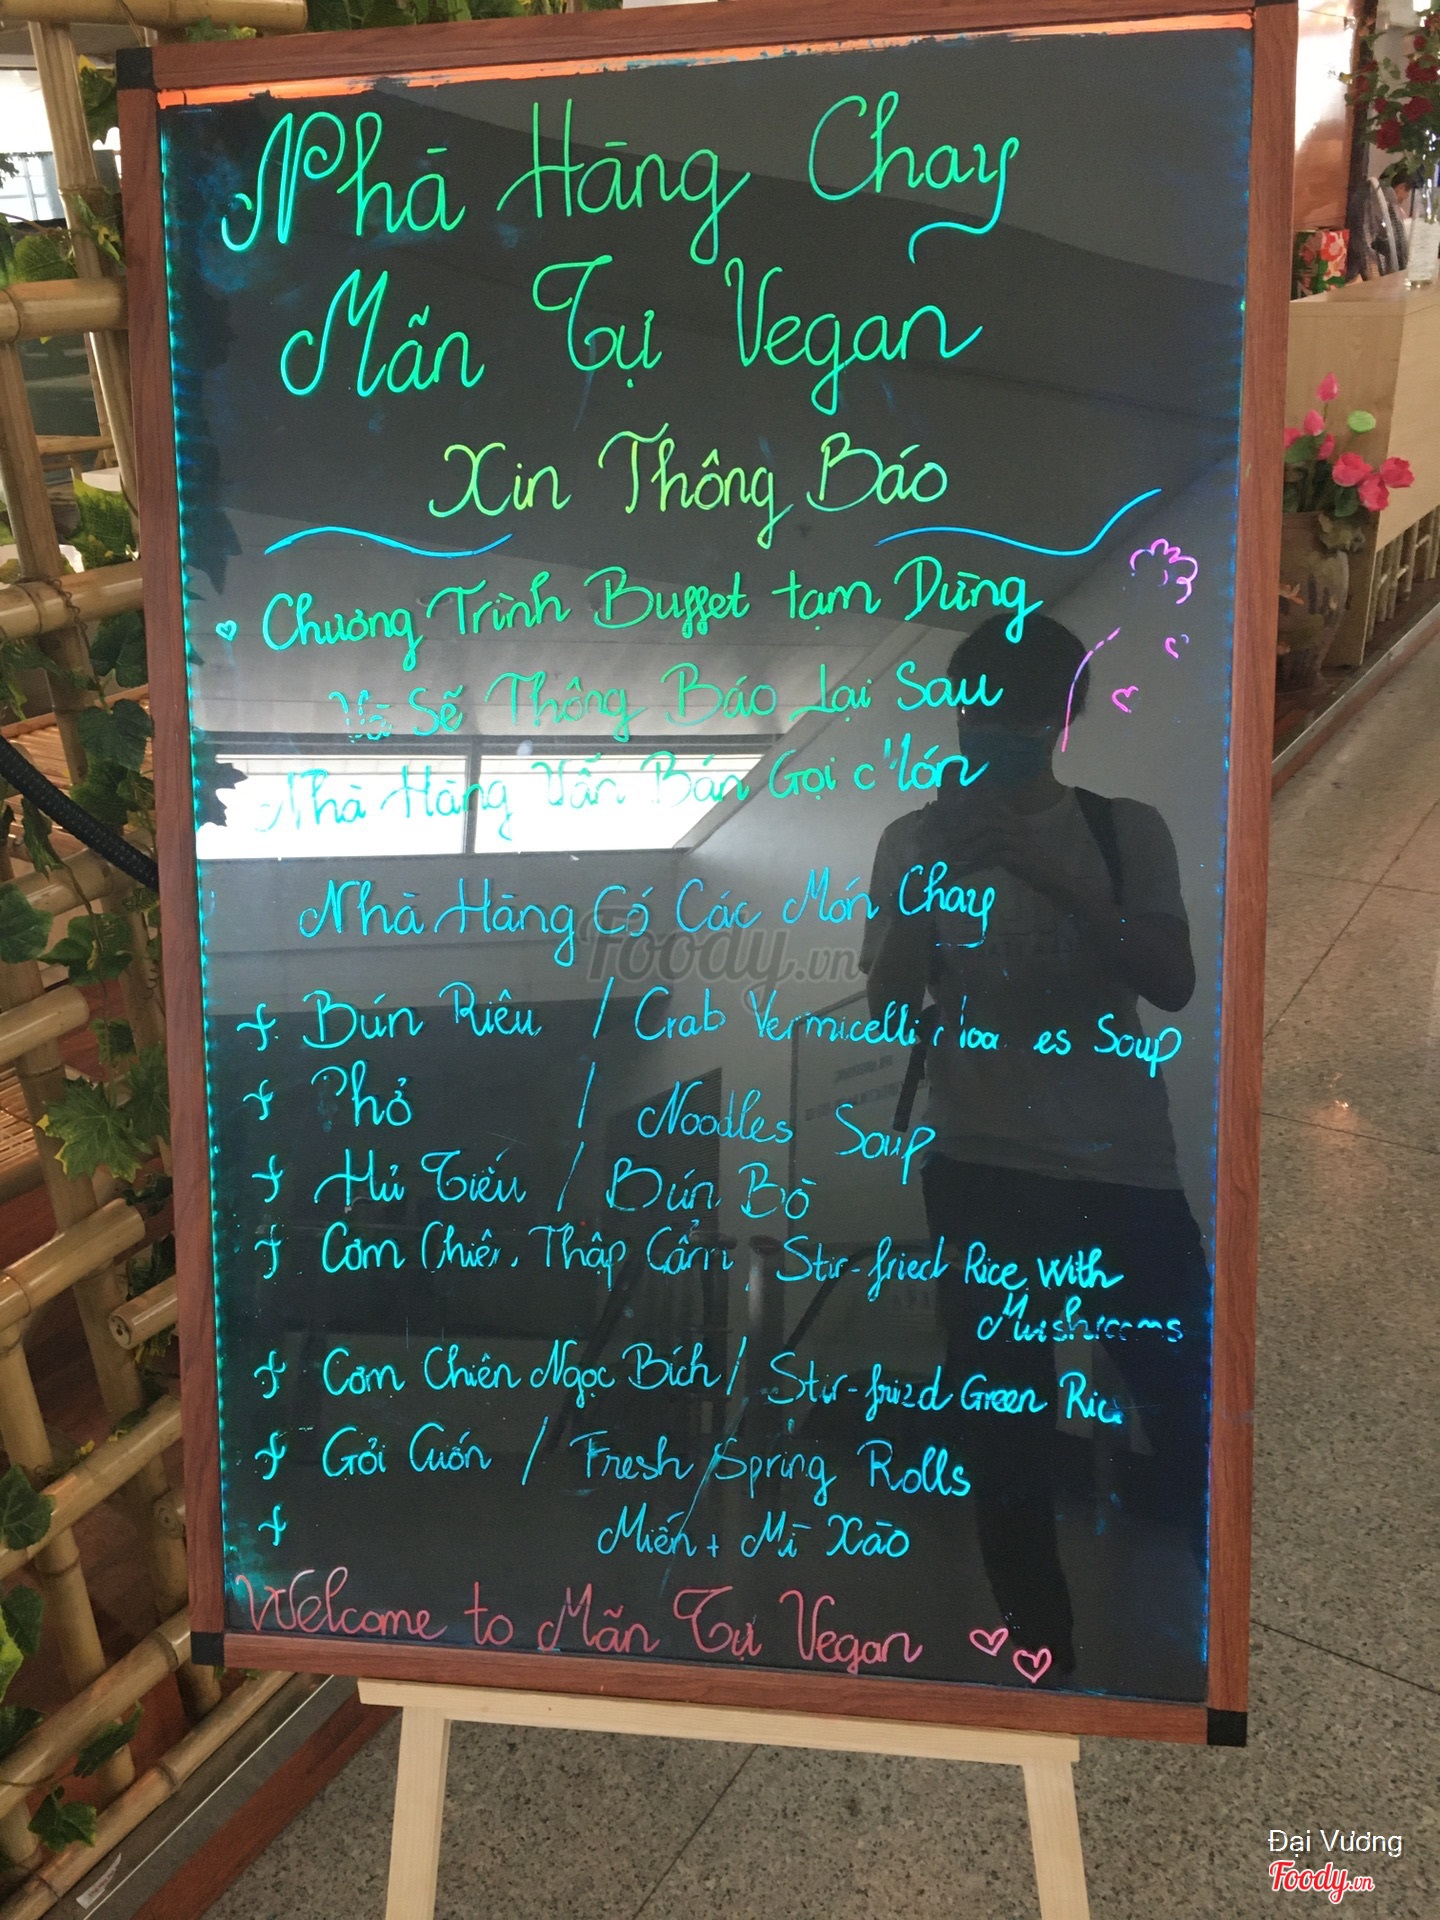 Nhà Hàng Chay
Mãn Tự Vegan
Xin Thông Báo
Chương Trình Buffet tạm Dừng
Và Sẽ Thông Báo Lại Sau
Nhà Hàng Vẫn Bán Gọi Món
Nhà Hàng Có Các Món Chay
Foody.vn
+ Bún Riêu / Crab Vermicelli Soup
+ Phở / Noodles Soup
+ Hủ Tiếu / Bún Bò
+ Cơm Chiên Thập Cẩm, Stir-fried Rice With
Mushrooms
+ Cơm Chiên Ngọc Bích / Stir-fried Green Rice
+ Gỏi Cuốn / Fresh Spring Rolls
+ Miến + Mì Xào
Welcome to Mãn Tự Vegan
Đại Vương
Foody.vn